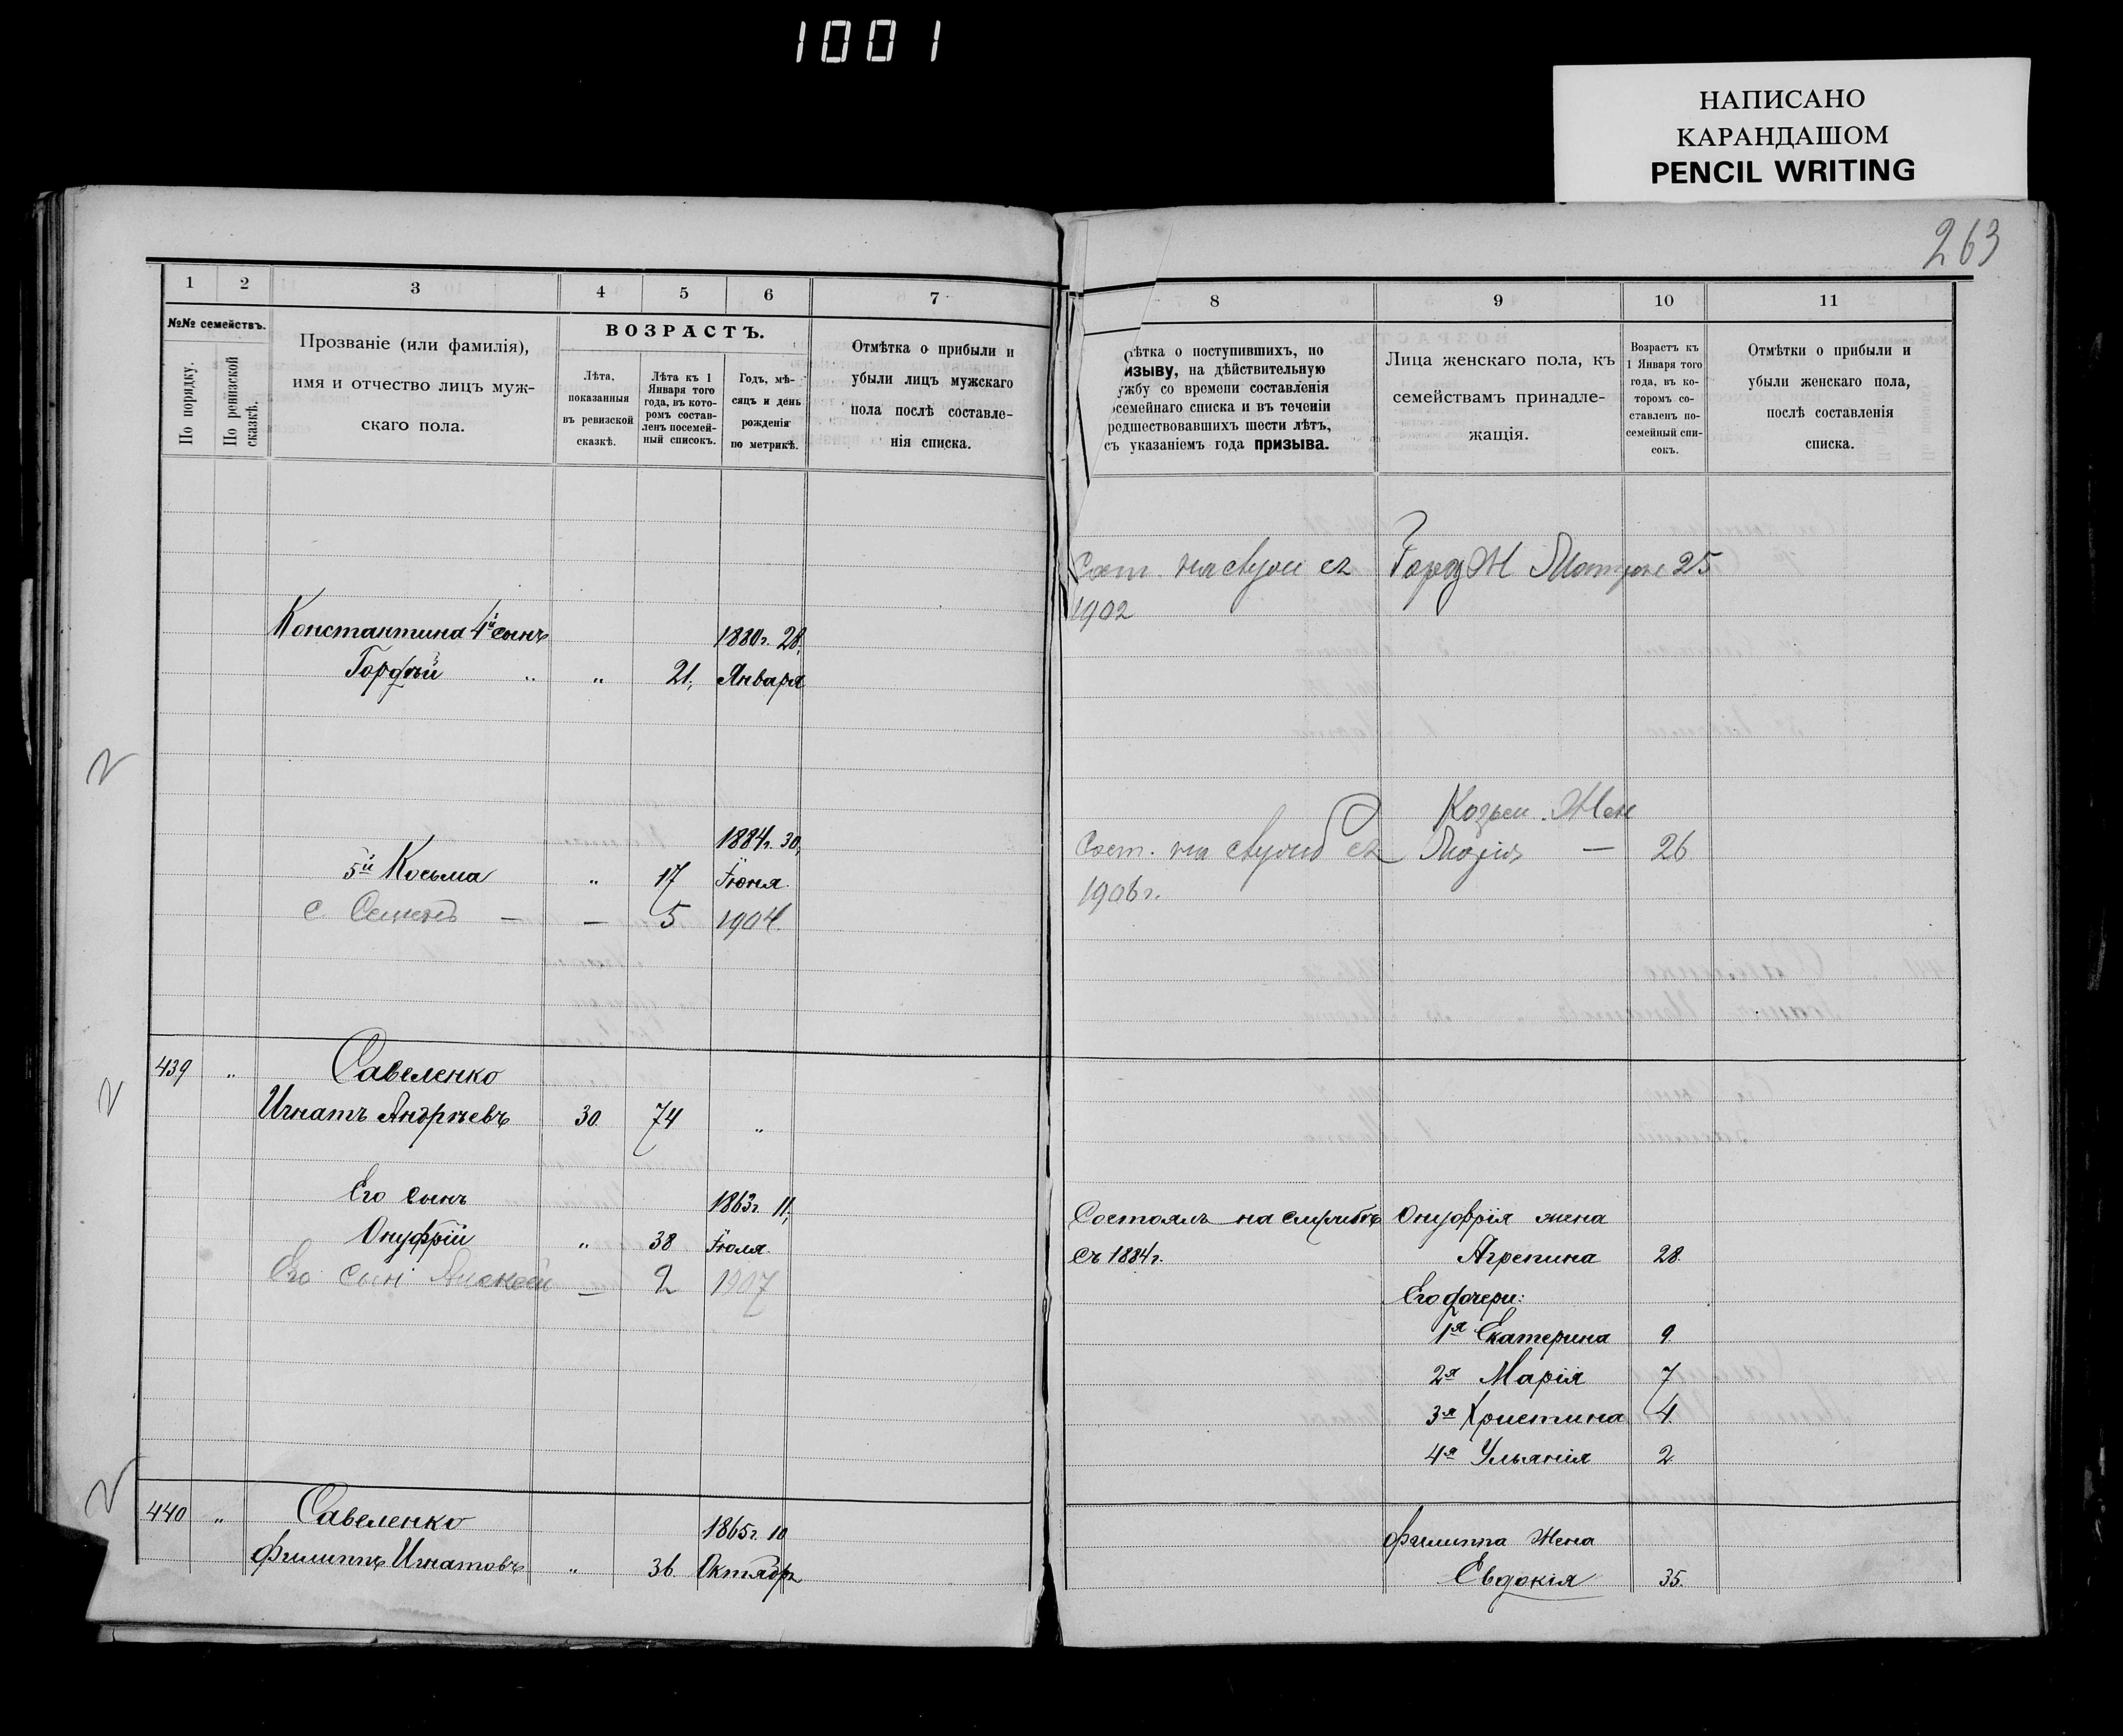 1001
НАПИСАНО
КАРАНДАШОМ
PENCIL WRITING
263
1 2 3 4 5 6 7
№№ семействъ.
По порядку.
По ревизской сказкѣ.
Прозваніе (или фамилія),
имя и отчество лицъ муж-
скаго пола.
ВОЗРАСТЪ.
Лѣта,
показанныя
въ ревизской
сказкѣ.
Лѣта къ 1
Января того
года, въ кото-
ромъ состав-
ленъ посемей-
ный списокъ.
Годъ, мѣ-
сяцъ и день
рожденія
по метрикѣ.
Отмѣтка о прибыли и
убыли лицъ мужскаго
пола послѣ составле-
нія списка.
Константина 4й сынъ 1880г. 28,
Гордѣй " " 21, Января
1884г. 30,
5й Косьма " 17 Іюня.
с. Семенъ — — 5 1904.
439 " Савеленко
Игнатъ Андрѣевъ 30. 74 "
Его сынъ 1863г. 11,
Онуфрій " 38 Іюля.
Его сын Алексей — 2 1907
440 " Савеленко 1865г. 10
Филиппъ Игнатовъ " 36. Октябр
8 9 10 11
ѣтка о поступившихъ, по
изыву, на дѣйствительную
ужбу со времени составленія
осемейнаго списка и въ теченіи
редшествовавшихъ шести лѣтъ,
съ указаніемъ года призыва.
Лица женскаго пола, къ
семействамъ принадле-
жащія.
Возрастъ къ
1 Января того
года, въ ко-
торомъ со-
ставленъ по-
семейный спи-
сокъ.
Отмѣтки о прибыли и
убыли женскаго пола,
послѣ составленія
списка.
Сост. на 25
1902
Жен
Сост. на — 26
1906г.
Состоялъ на службѣ Онуфрія жена
съ 1884г. Агрепина 28.
Его дочери:
1я Екатерина 9.
2я Марія 7
3я Христина 4.
4я Ульянія 2.
Филиппа жена
Евдокія 35.